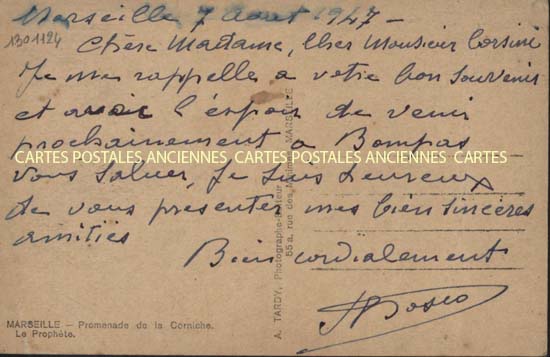 Marseille 7 Aout 1947 -
1301124
Chère Madame, Cher Monsieur Corsini
Je me rappelle a votre bon souvenir
et avoir l'espoir de venir
prochainement a Bompas
CARTES POSTALES ANCIENNES CARTES POSTALES ANCIENNES CARTES
Vous saluer, Je suis heureux
de vous presenter mes bien sincères
amitiés
Bien cordialement
Bosco
MARSEILLE — Promenade de la Corniche.
Le Prophète.
A. TARDY, Photographe-Editeur
55a, rue des MARSEILLE